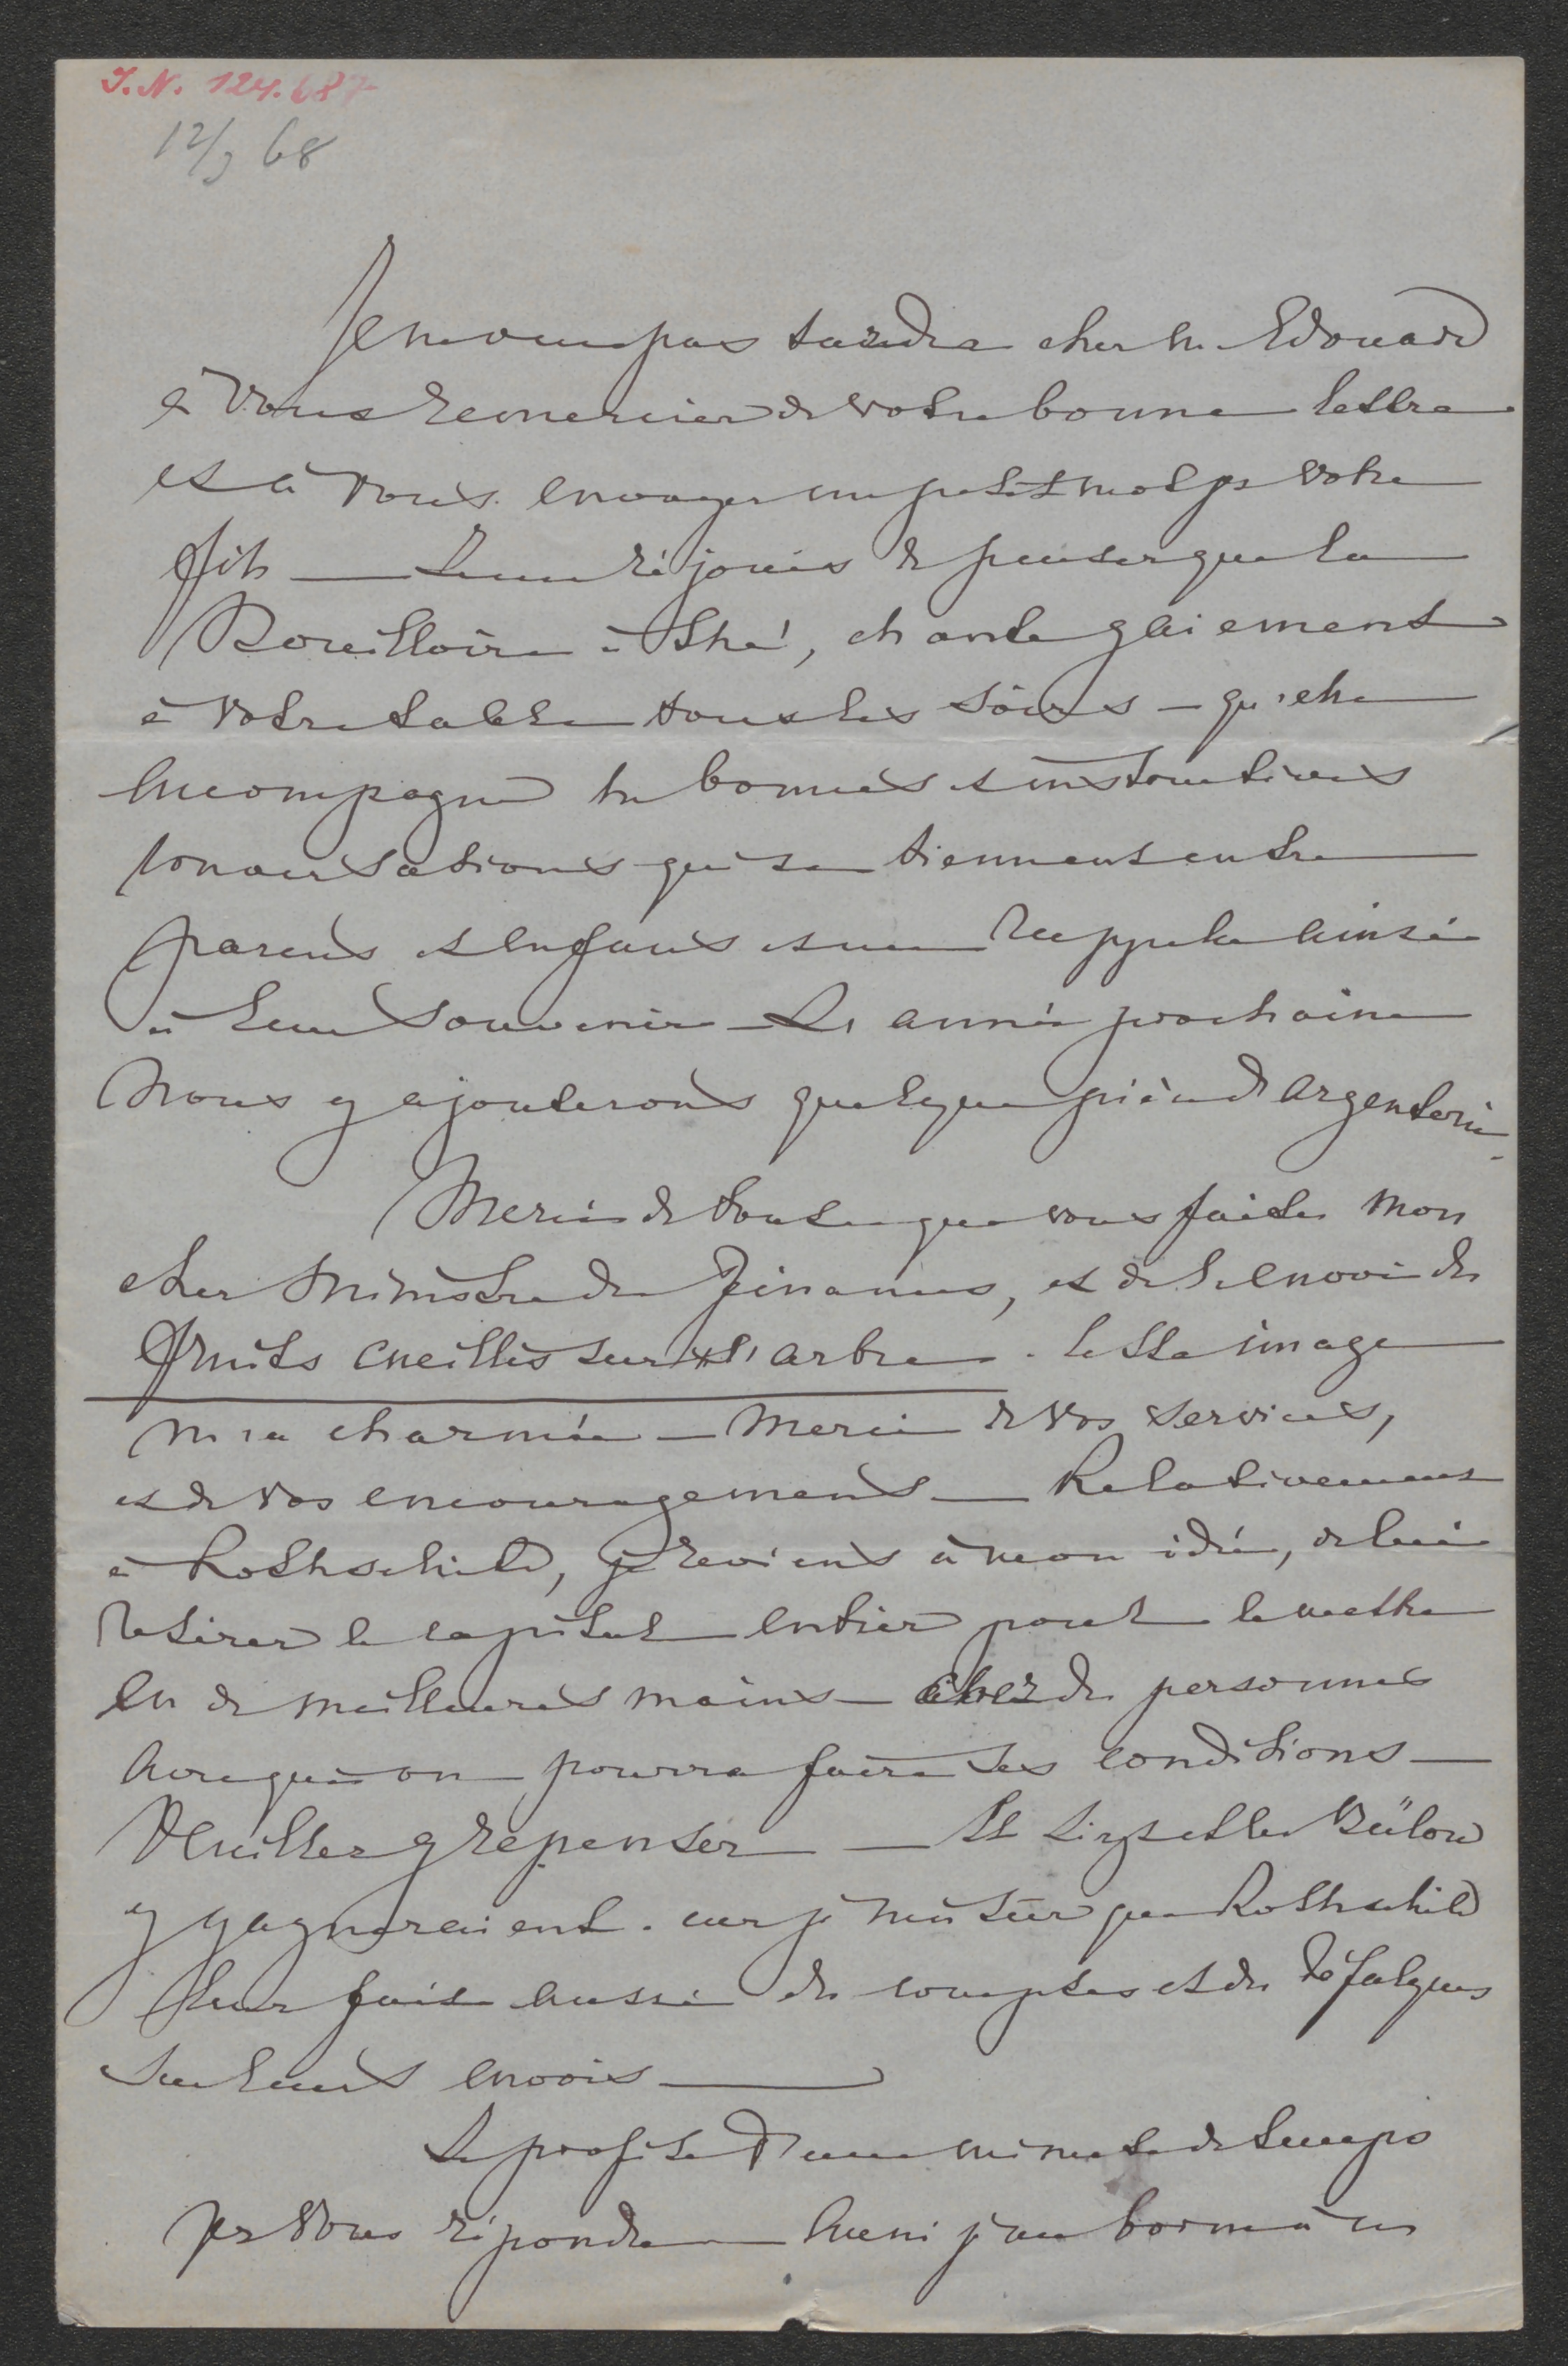 I.N. 124.687
12/3 68
Je ne veux pas tarder cher M. Edouard
à vous remercier de votre bonne lettre
et à vous envoyer un petit mot pr votre
fils — Je me réjouis de penser que la
Bouilloire à thé, chante gaiement
à votre table tous les soirs — qu'elle
accompagne les bonnes et instructives
conversations qui se tiennent entre
parens et enfans et me rappelle ainsi
à leur souvenir — L'année prochaine
nous y ajouterons quelque pièce d'argenterie
Merci de tout ce que vous faites mon
cher Ministre des Finances, et de l'envoi des
fruits cueillis sur l'arbre. Cette image
m'a charmée — Merci de vos services,
et de vos encouragemens — Relativement
à Rothschild, je reviens à mon idée, de lui
retirer le capital entier pour le mettre
en de meilleures mains — chez des personnes
avec qui on pourra faire ses conditions —
Veuillez y repenser — Et Liszt et les Bülow
y gagneraient. car je suis sûre que Rothschild
leur fait aussi des comptes et des défalques
sur leurs envois —
Je profite d'une minute de temps
pr vous répondre — Aussi je me borne à ces